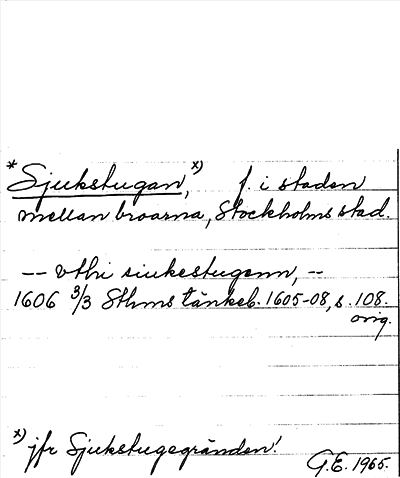 * Sjukstugan, x) f. i staden
mellan broarna, Stockholms stad.
-- vthi siukestugenn, --
1606 3/3 Sthms tänkeb. 1605-08, s. 108.
orig.
x) jfr Sjukstugegränden!
G.E. 1965.